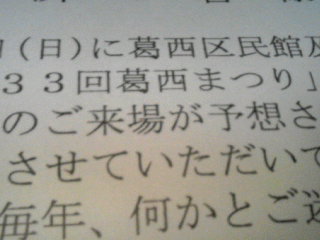 (日)に葛西区民館及
33回葛西まつり」
のご来場が予想さ
させていただいて
毎年、何かとご迷